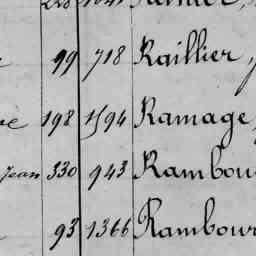 99 718 Raillier,
198 1594 Ramage,
Jean 330 943 Rambou
93 1366 Rambour